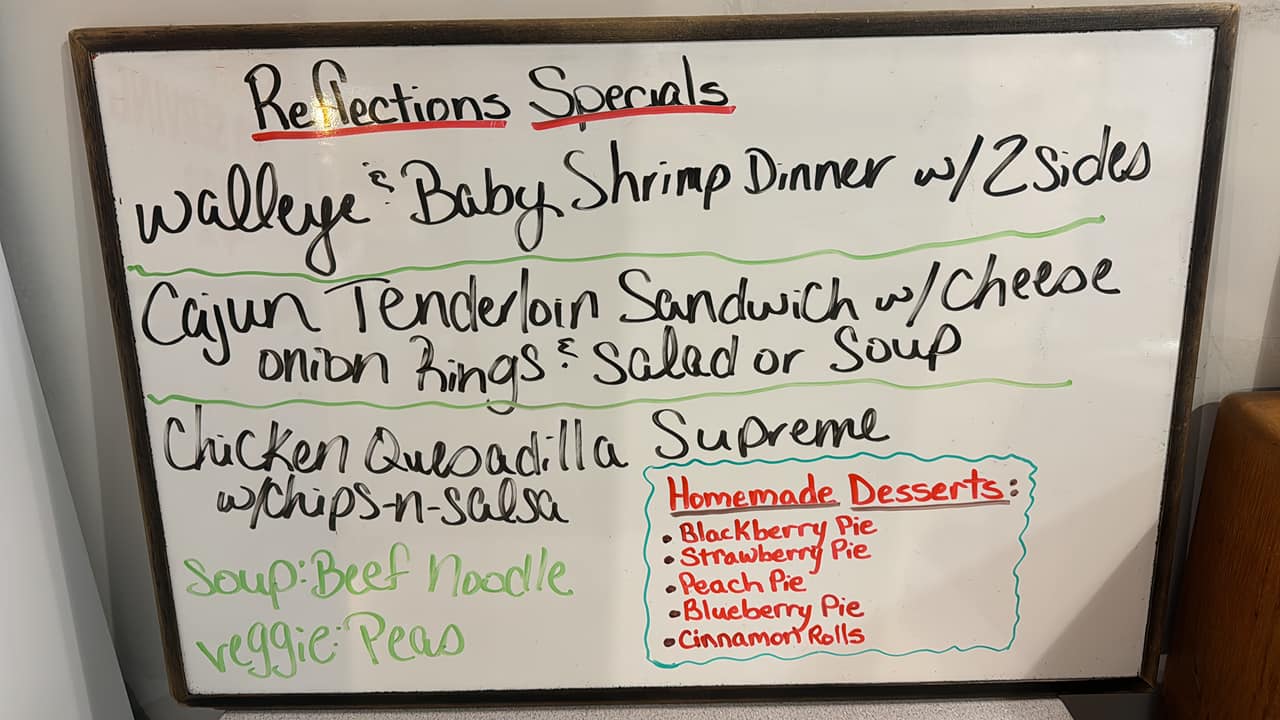 Reflections Specials
Walleye & Baby Shrimp Dinner w/ 2 Sides
Cajun Tenderloin Sandwich w/ Cheese
onion Rings & Salad or Soup
Chicken Quesadilla Supreme
w/chips-n-salsa
Soup: Beef Noodle
veggie: Peas
Homemade Desserts:
• Blackberry Pie
• Strawberry Pie
• Peach Pie
• Blueberry Pie
• Cinnamon Rolls